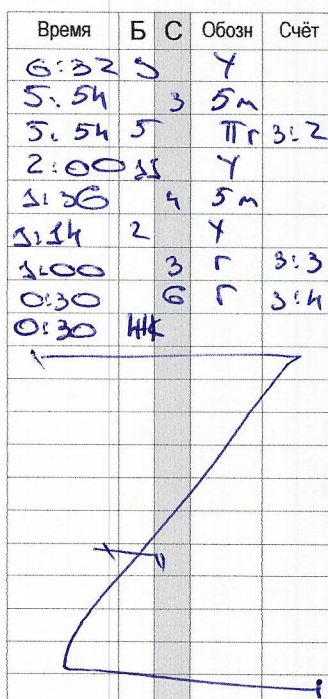 Время Б С Обозн Счёт
6:32 5 У
5:54 3 5м
5:54 5 Пг 3:2
2:00 11 У
1:36 4 5м
1:14 2 У
1:00 3 Г 3:3
0:30 6 Г 3:4
0:30 ЖК